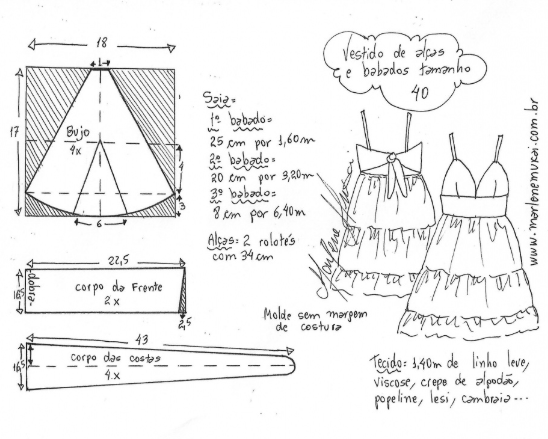 18
1
17
Bujo
4x
4
3
6
Saia:
1º babado:
25 cm por 1,60m
2º babado:
20 cm por 3,20m
3º babado:
8 cm por 6,40m
Alças: 2 rolotês
com 34 cm
Vestido de alças
e babados tamanho
40
www.marlenemukai.com.br
Marlene Mukai
22,5
dobra
16,5
corpo da Frente
2x
2,5
Molde sem margem
de costura
43
16,5
corpo das costas
4x
Tecido: 1,40m de linho leve,
viscose, crepe de algodão,
popeline, lesi, cambraia...